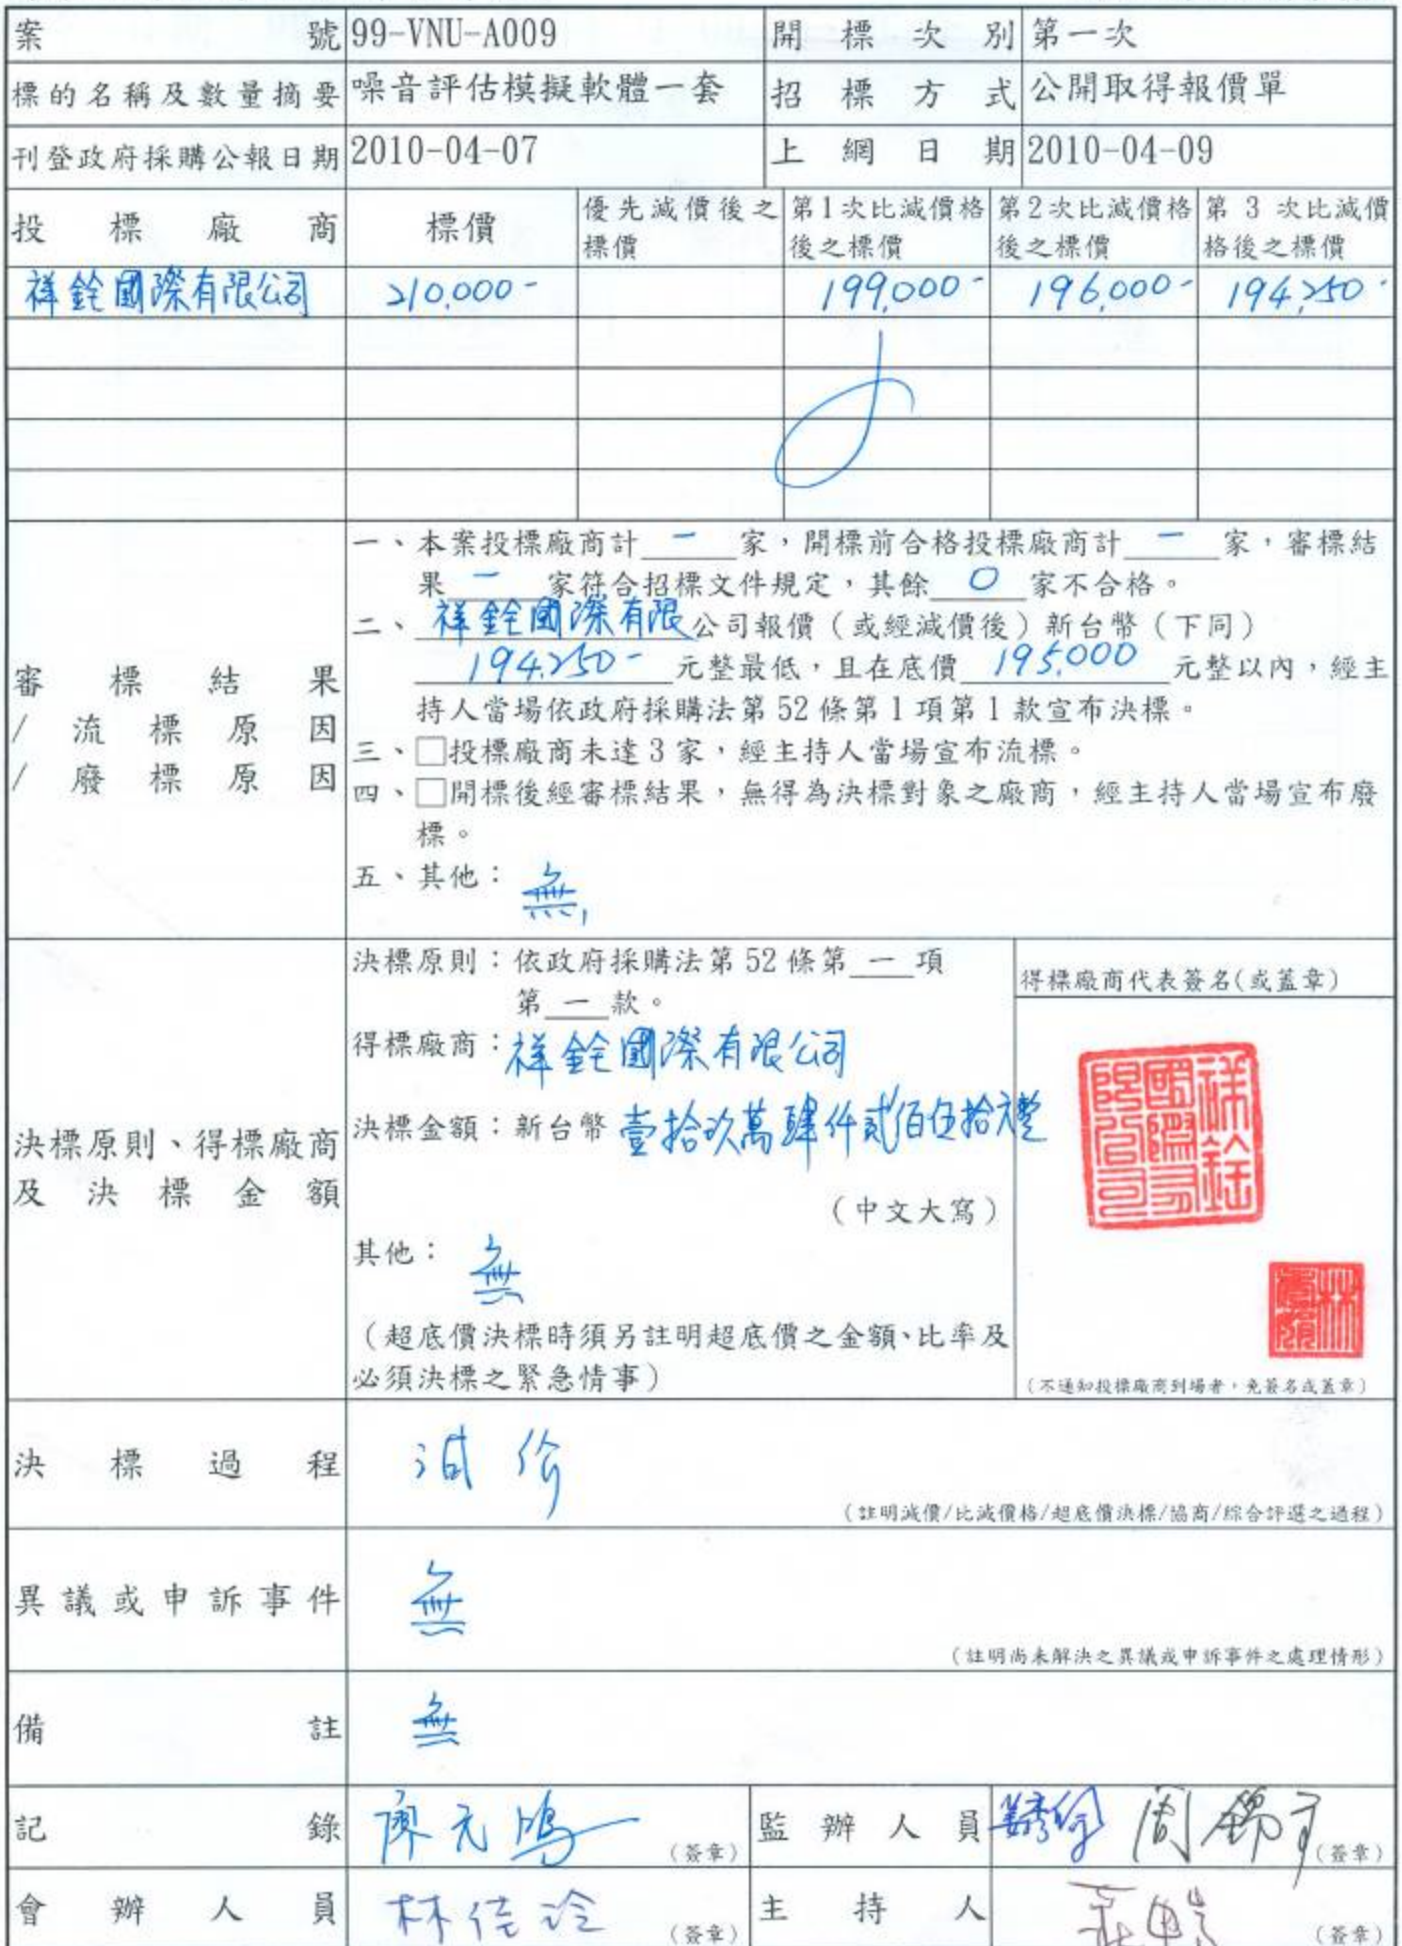 案號 99-VNU-A009 開標次別 第一次
標的名稱及數量摘要 噪音評估模擬軟體一套 招標方式 公開取得報價單
刊登政府採購公報日期 2010-04-07 上網日期 2010-04-09
投標廠商 標價 優先減價後之標價 第1次比減價格後之標價 第2次比減價格後之標價 第3次比減價格後之標價
祥銓國際有限公司 210,000- 199,000- 196,000- 194,250-
審標結果
/流標原因
/廢標原因
一、本案投標廠商計 一 家，開標前合格投標廠商計 一 家，審標結
果 一 家符合招標文件規定，其餘 0 家不合格。
二、祥銓國際有限公司報價（或經減價後）新台幣（下同）
194,250- 元整最低，且在底價 195,000 元整以內，經主
持人當場依政府採購法第52條第1項第1款宣布決標。
三、□投標廠商未達3家，經主持人當場宣布流標。
四、□開標後經審標結果，無得為決標對象之廠商，經主持人當場宣布廢
標。
五、其他：無
決標原則、得標廠商
及決標金額
決標原則：依政府採購法第52條第 一 項
第 一 款。
得標廠商：祥銓國際有限公司
決標金額：新台幣 壹拾玖萬肆仟貳佰伍拾元整
（中文大寫）
其他：無
（超底價決標時須另註明超底價之金額、比率及
必須決標之緊急情事）
得標廠商代表簽名(或蓋章)
祥銓
國際有
限公司
（不通知投標廠商到場者，免簽名或蓋章）
決標過程 減價
（註明減價/比減價格/超底價決標/協商/綜合評選之過程）
異議或申訴事件 無
（註明尚未解決之異議或申訴事件之處理情形）
備註 無
記錄 廖元鴻 （簽章） 監辦人員 （簽章）
會辦人員 林佳 （簽章） 主持人 （簽章）